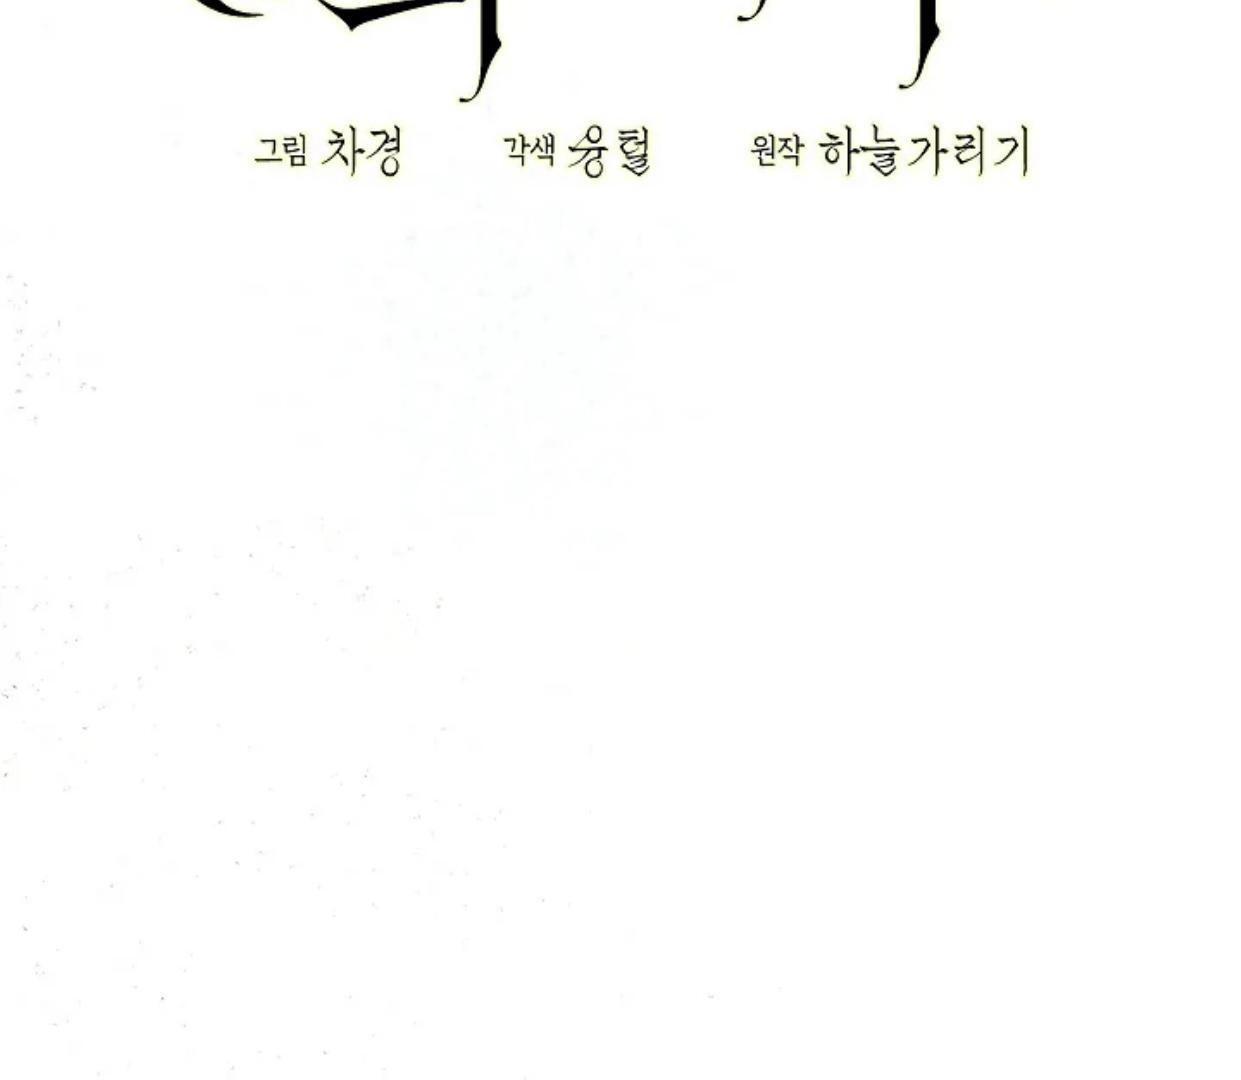 그림 차경 각색 웅털 원작 하늘가리기